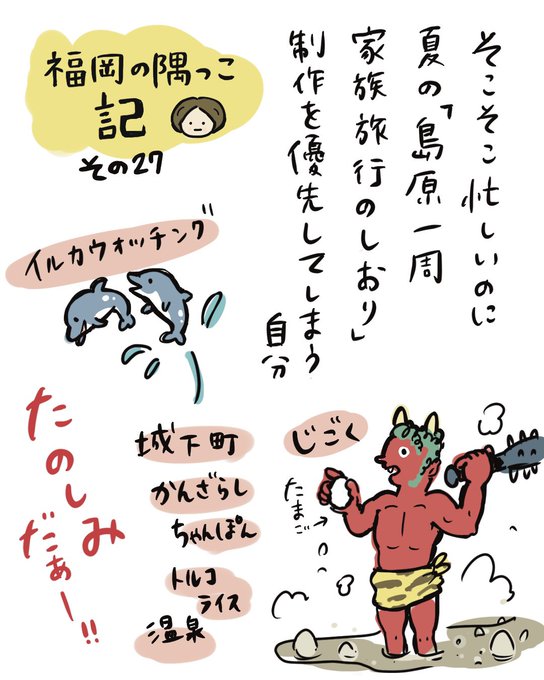 福岡の隅っこ
記
その27
そこそこ忙しいのに
夏の「島原一周
家族旅行のしおり」
制作を優先してしまう
自分
イルカウォッチング
たのしみ
だぁー!!
城下町
かんざらし
ちゃんぽん
トルコ
ライス
温泉
じごく
たまご